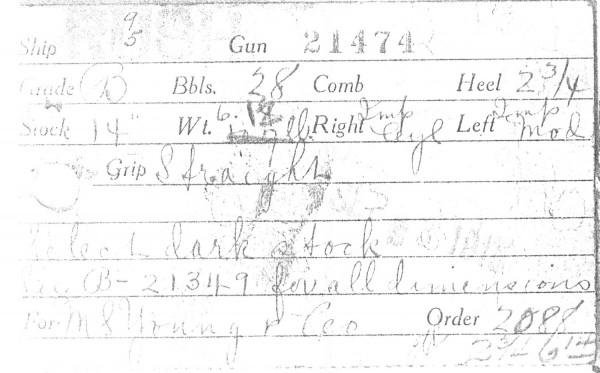 Ship 9/5 Gun 21474
Grade B Bbls. 28 Comb Heel 2 3/4
Stock 14" Wt. 6. 12 lb. Right Imp Cyl Left Imp Mod
Grip Straight
Select dark stock
See B-21349 for all dimensions
For M S Young & Co Order 2088